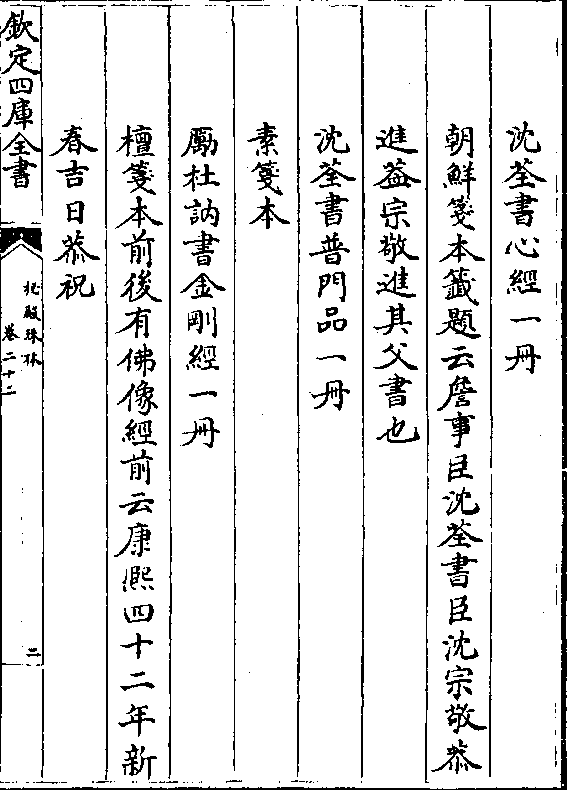 沈荃書心經一册
朝鮮箋本籤題云詹事臣沈荃書臣沈宗敬恭
進葢宗敬進其父書也
沈荃書普門品一册
素箋本
勵杜訥書金剛經一册
檀箋本前後有佛像經前云康熙四十二年新
春吉日恭祝
欽定四庫全書
秘殿珠林
卷二十二
二